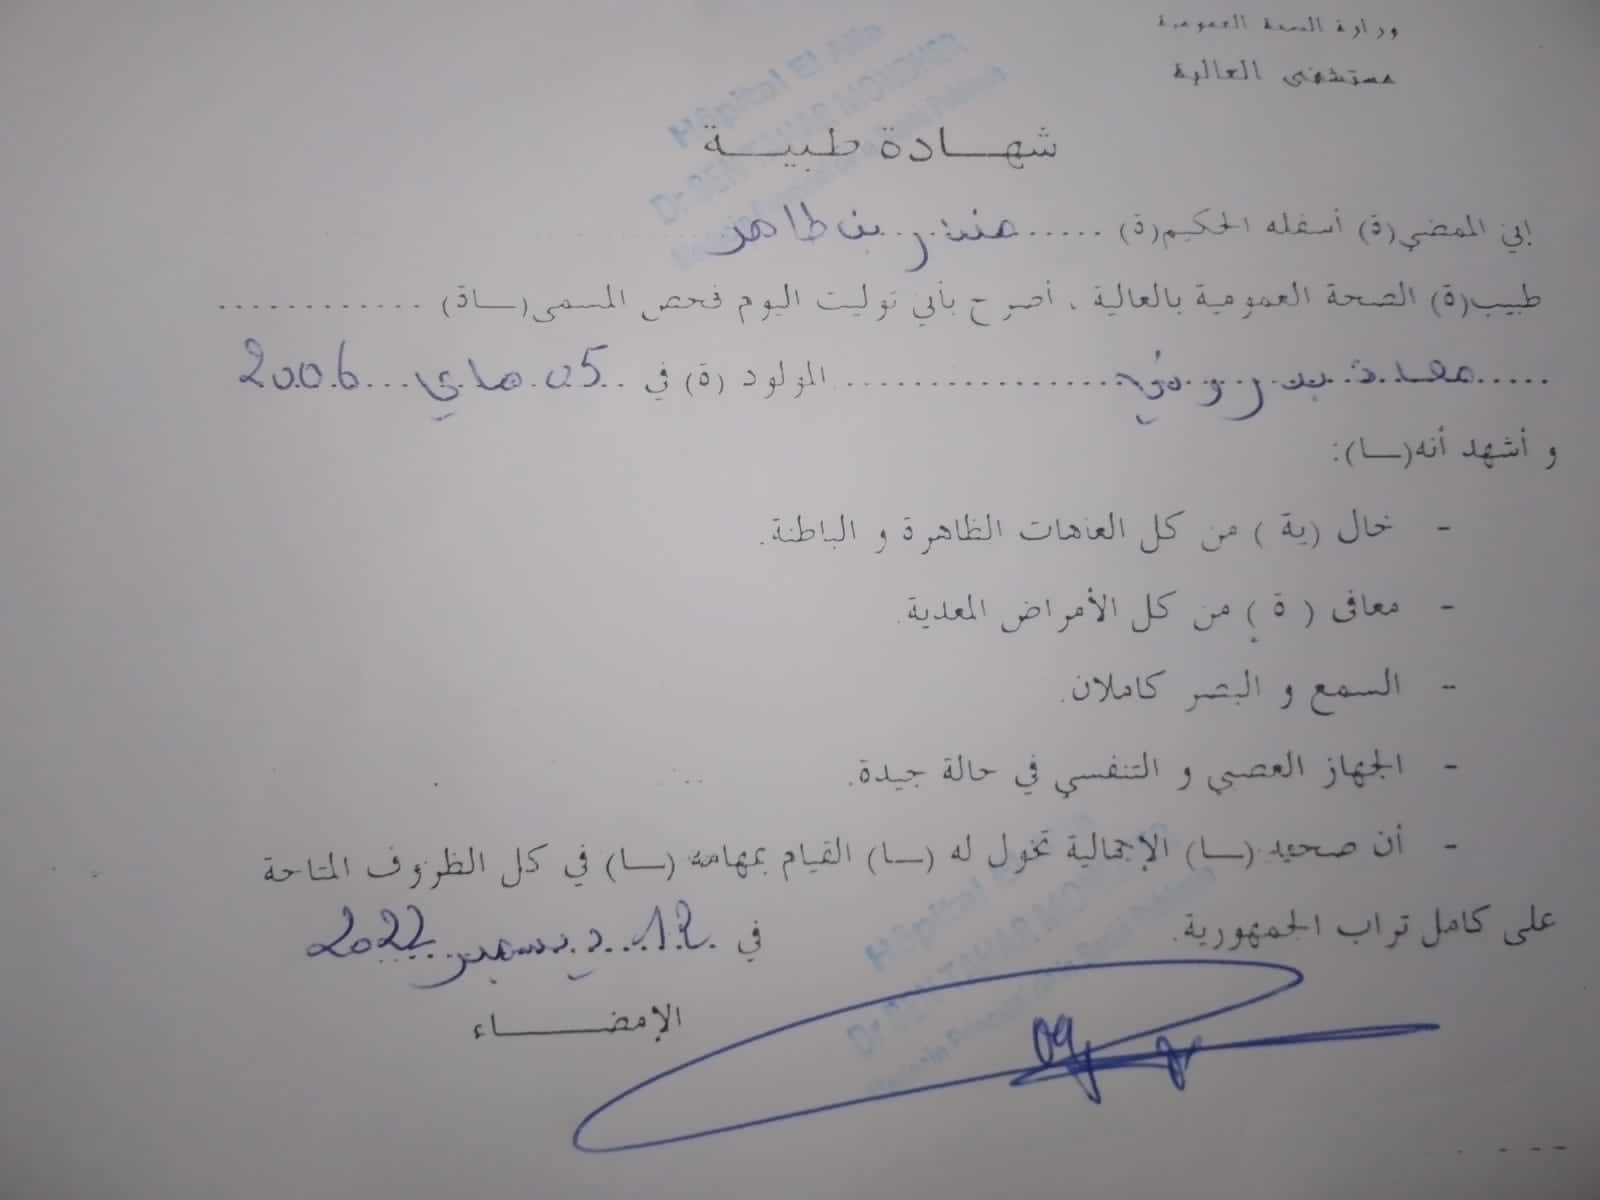 وزارة الصحة العمومية
مستشفى العالية
Hôpital El Alia
Dr BEN TAHAR MONDHER
شهـــادة طبيـــة
إني الممضي(ة) أسفله الحكيم(ة) ..... منذر بن طاهر
طبيب(ة) الصحة العمومية بالعالية ، أصرح بأني توليت اليوم فحص المسمى(ـاة) ............
..... بدروشي ................ المولود (ة) في .. 05 ماي 2006
و أشهد أنه(ـا):
- خال (ية ) من كل العاهات الظاهرة و الباطنة.
- معافى ( ة ) من كل الأمراض المعدية.
- السمع و البصر كاملان.
- الجهاز العصبي و التنفسي في حالة جيدة.
- أن صحته (ـا) الإجمالية تخول له (ـا) القيام بمهامه (ـا) في كل الظروف المتاحة
على كامل تراب الجمهورية.
في 12 ديسمبر 2022
Hôpital
Dr BEN TAHAR MON
الإمضـــــاء